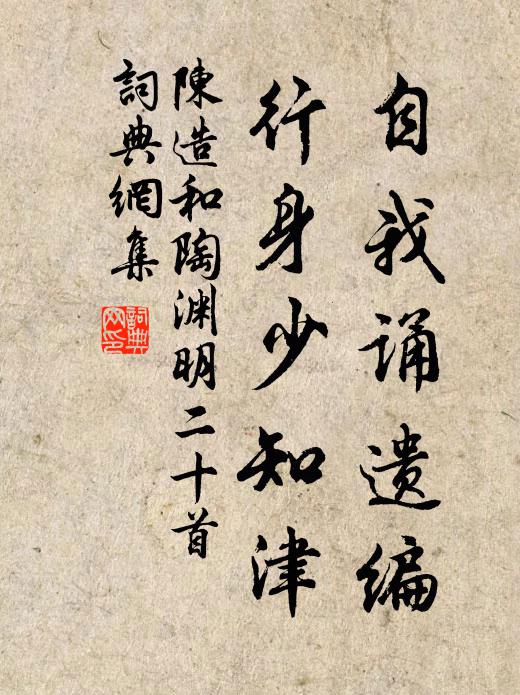 自我诵遗编
行身少知津
陳造和陶渊明二十首
詞典網集
詞典网印